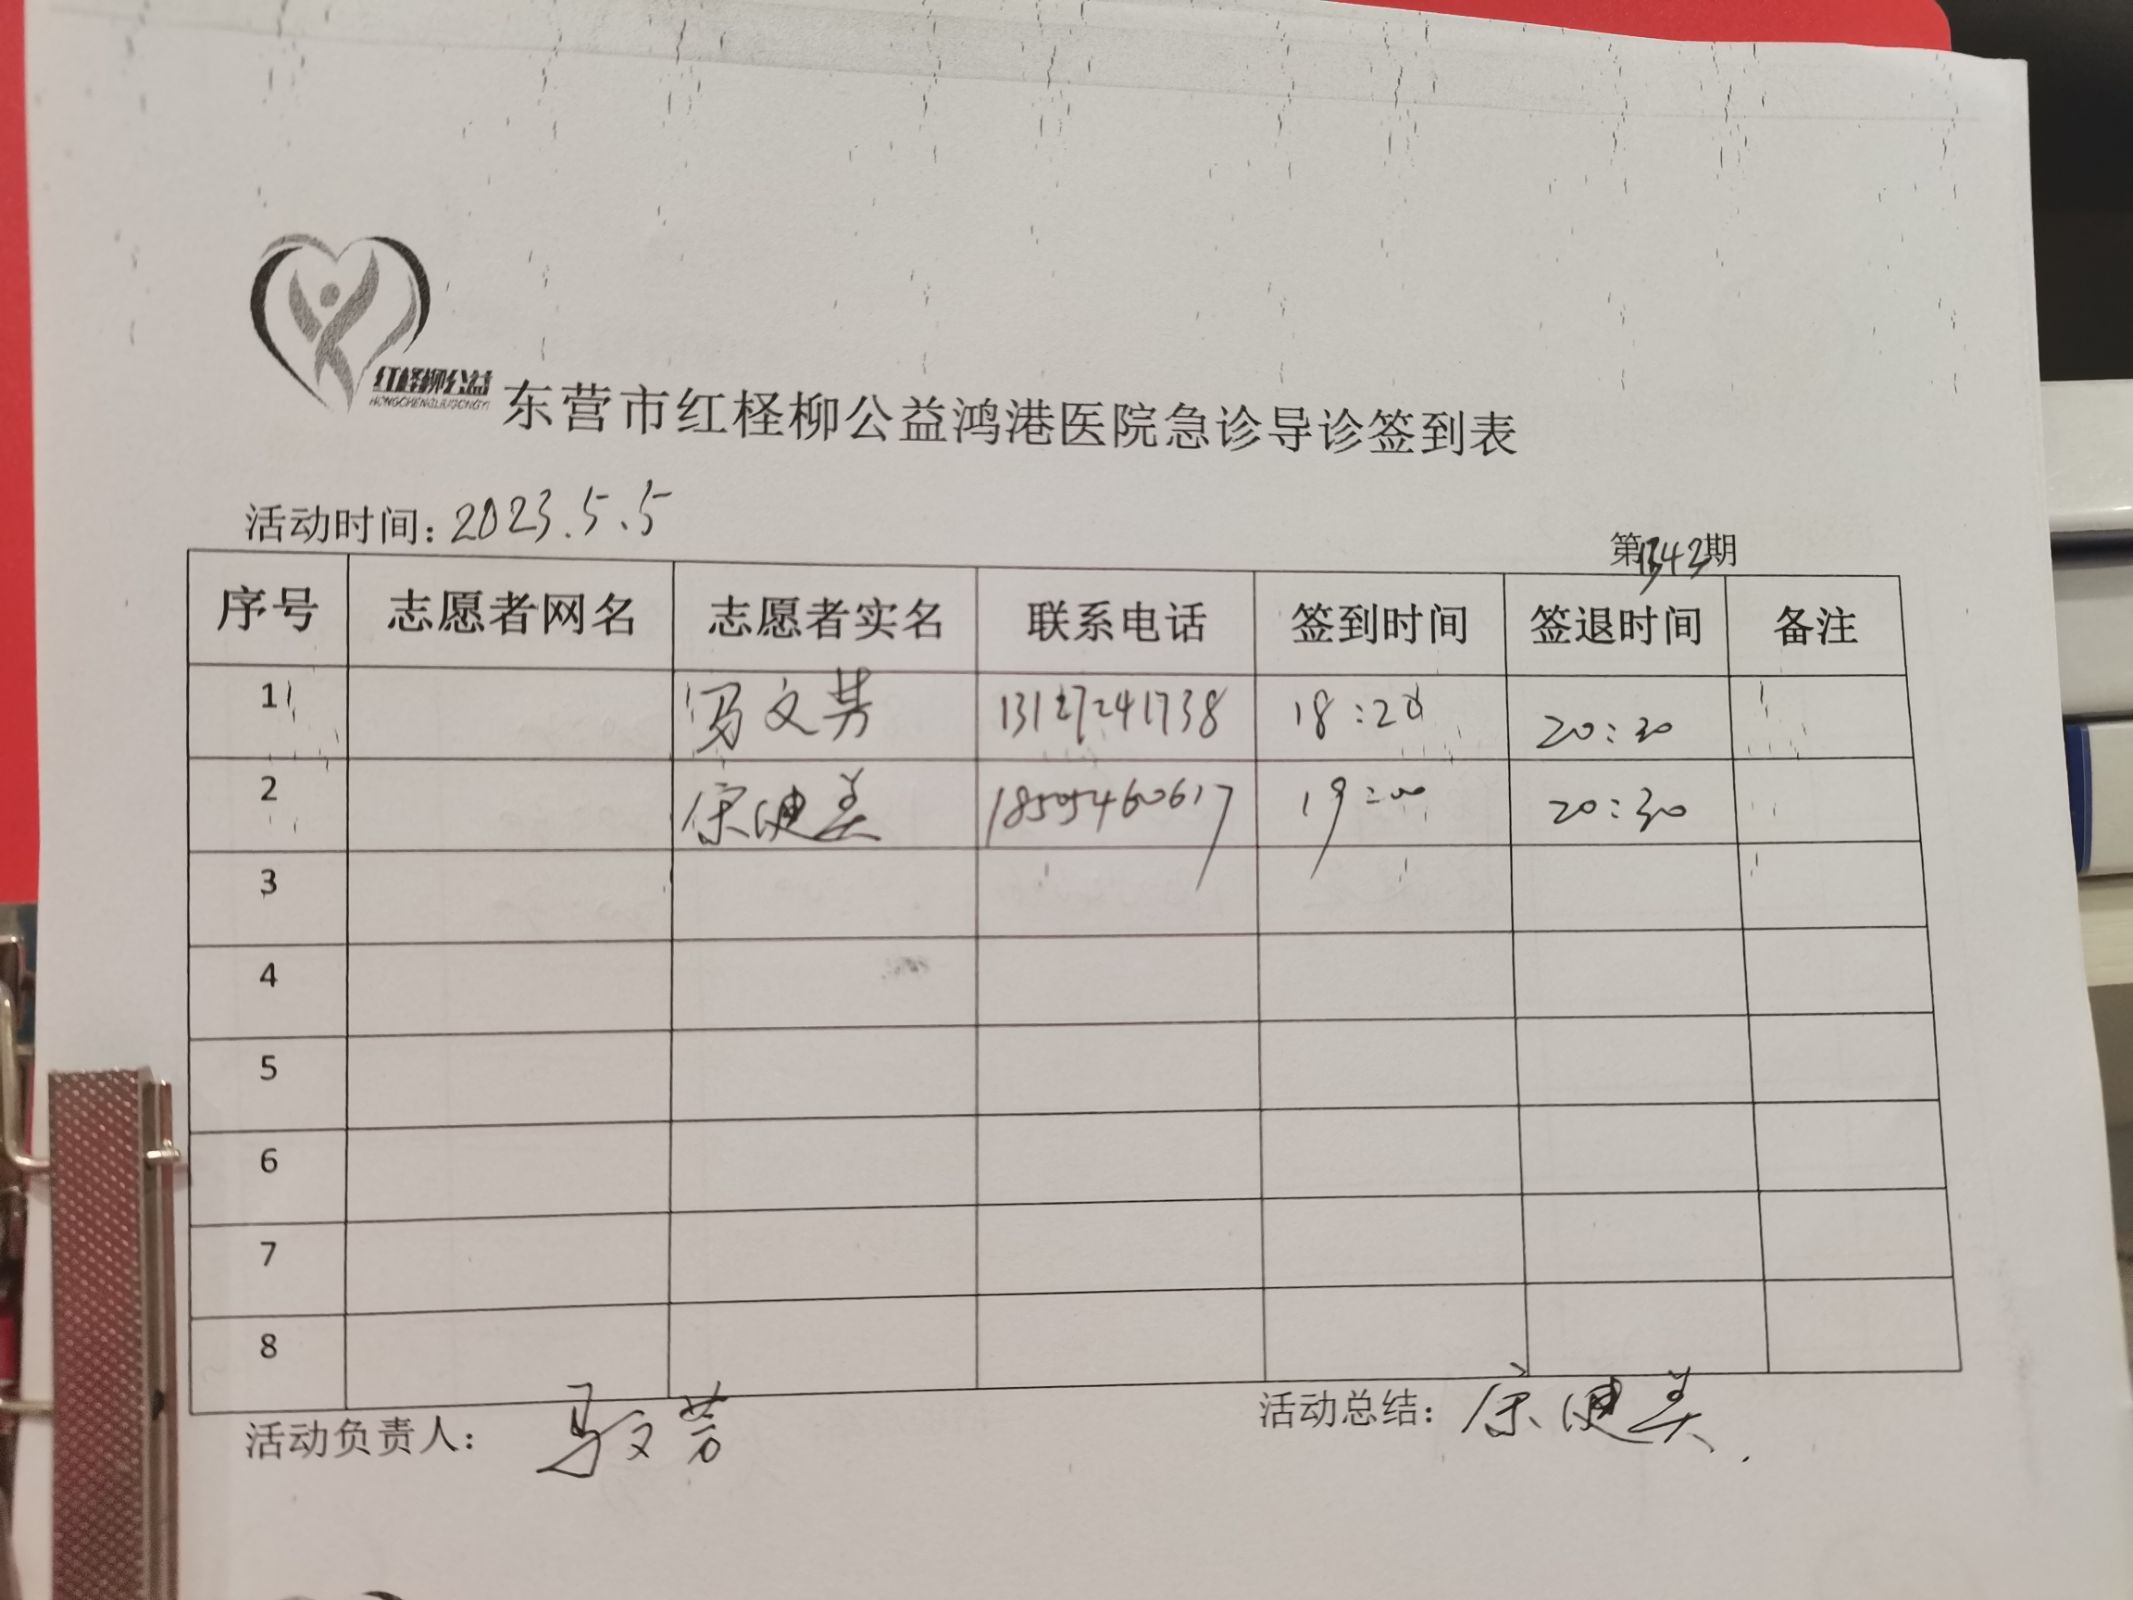 红柽柳公益
HONGCHENGLIUGONGYI
东营市红柽柳公益鸿港医院急诊导诊签到表
活动时间：2023.5.5
第1343期
序号 志愿者网名 志愿者实名 联系电话 签到时间 签退时间 备注
1 冯文芳 13127241738 18:20 20:30
2 宋健美 18505460617 19:00 20:30
3
4
5
6
7
8
活动负责人： 冯文芳
活动总结： 宋健美